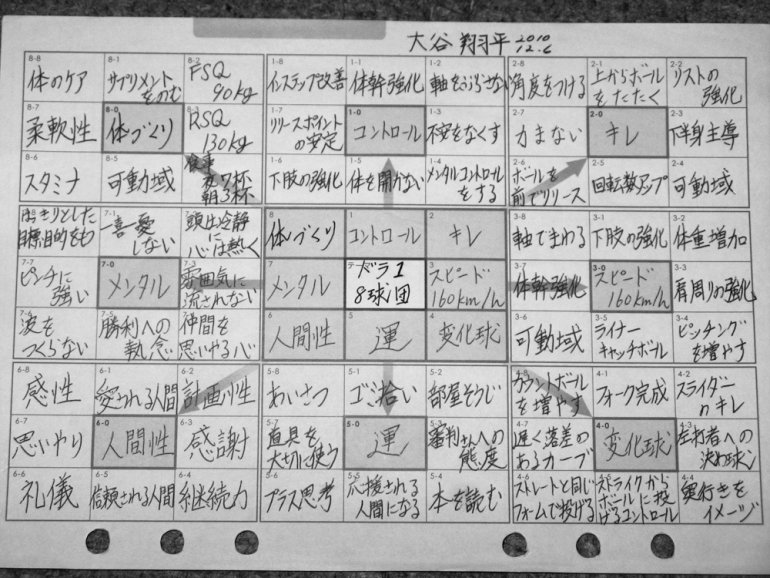 大谷 翔平 2010
12.6
8-8
体のケア
8-1
サプリメント
をのむ
8-2
FSQ
90kg
8-7
柔軟性
8-0
体づくり
8-3
RSQ
130kg
8-6
スタミナ
8-5
可動域
食事
夜7杯
朝3杯
1-8
インステップ改善
1-1
体幹強化
1-2
軸をぶらさない
1-7
リリースポイント
の安定
1-0
コントロール
1-3
不安をなくす
1-6
下肢の強化
1-5
体を開かない
1-4
メンタルコントロール
をする
2-8
角度をつける
2-1
上からボール
をたたく
2-2
リストの
強化
2-7
力まない
2-0
キレ
2-3
下半身主導
2-6
ボールを
前でリリース
2-5
回転数アップ
2-4
可動域
はっきりとした
目標目的をも
7-1
一喜一憂
しない
頭は冷静に
心は熱く
7-7
ピンチに
強い
7-0
メンタル
7-3
雰囲気に
流されない
波を
つくらない
7-5
勝利への
執念
7-4
仲間を
思いやる心
8
体づくり
1
コントロール
2
キレ
7
メンタル
ドラ1
8球団
3
スピード
160km/h
6
人間性
5
運
4
変化球
3-8
軸でまわる
3-1
下肢の強化
3-2
体重増加
3-7
体幹強化
3-0
スピード
160km/h
3-3
肩周りの強化
3-6
可動域
3-5
ライナー
キャッチボール
3-4
ピッチング
を増やす
6-8
感性
6-1
愛される人間
6-2
計画性
6-7
思いやり
6-0
人間性
6-3
感謝
6-6
礼儀
6-5
信頼される人間
6-4
継続力
5-8
あいさつ
5-1
ゴミ拾い
5-2
部屋そうじ
5-7
道具を
大切に使う
5-0
運
審判さんへの
態度
5-6
プラス思考
5-5
応援される
人間になる
5-4
本を読む
4-8
カウントボール
を増やす
4-1
フォーク完成
4-2
スライダー
のキレ
4-7
遅く落差の
あるカーブ
4-0
変化球
4-3
左打者への
決め球
4-6
ストレートと同じ
フォームで投げる
4-5
ストライクから
ボールに投
げるコントロール
4-4
奥行きを
イメージ